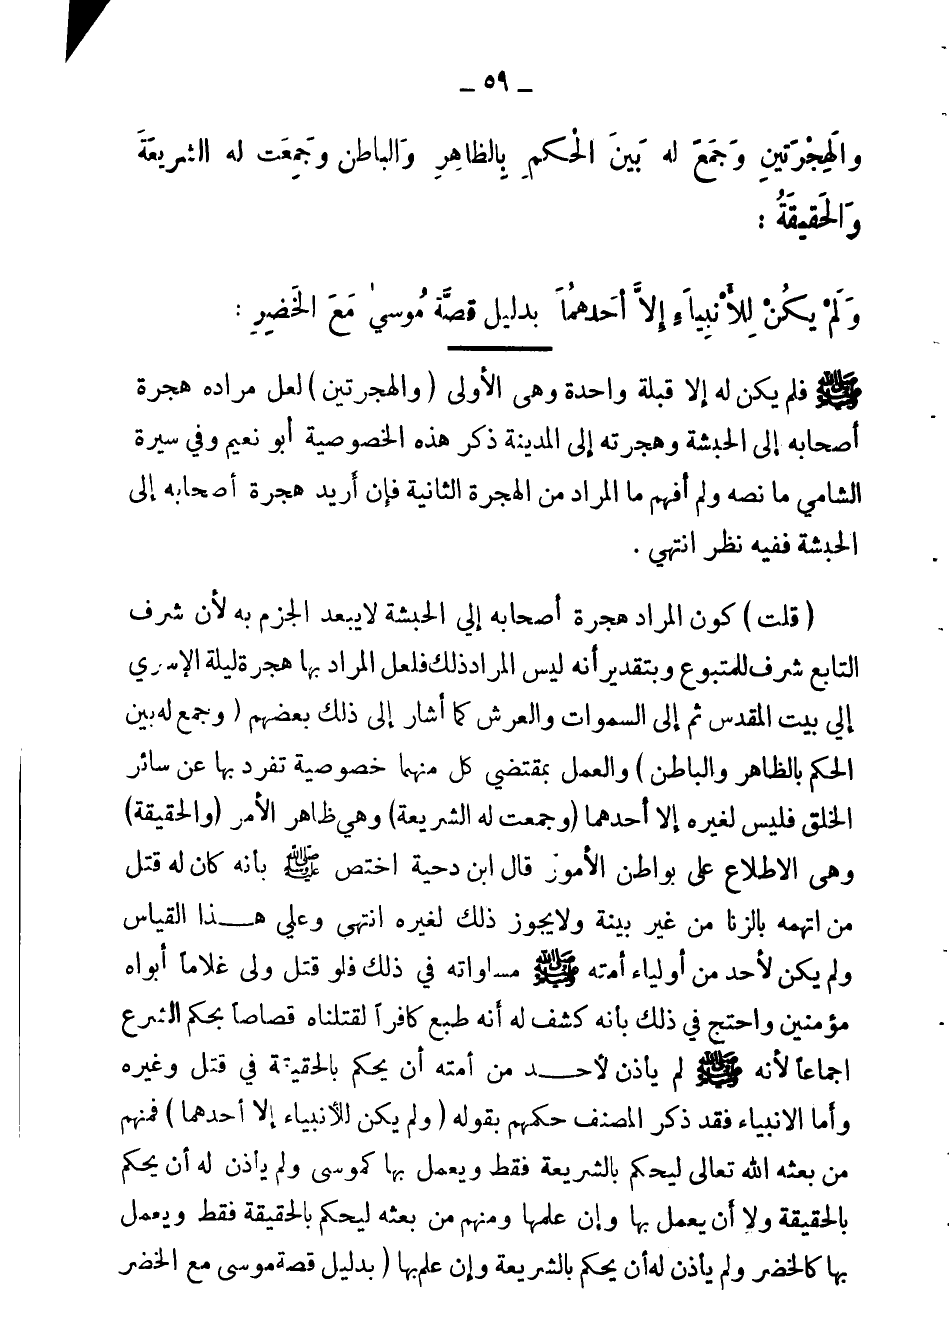 _ ٥٩ _
والْهِجْرَتَينِ وَجَمَعَ له بَينَ الْحكمِ بِالظاهِرِ وَالباطن وجَمِعَت له الشريعَةَ
وَالْحَقيقَةُ :
وَلَمْ يكُنْ لِلأنْبِياَءِ إلاَّ أحَدهمُاَ بدليل قصَّة مُوسىٰ مَعَ الخَضيرِ :
ﷺ فلم يكن له إلا قبلة واحدة وهى الأولى ( والهجرتين ) لعل مراده هجرة
أصحابه إلى الحبشة وهجرته إلى المدينة ذكر هذه الخصوصية أبو نعيم وفي سيرة
الشامي ما نصه ولم أفهم ما المراد من الهجرة الثانية فإن أريد هجرة أصحابه إلى
الحبشة ففيه نظر انتهي .
( قلت ) كون المراد هجرة أصحابه إلي الحبشة لايبعد الجزم به لأن شرف
التابع شرف للمتبوع وبتقدير أنه ليس المراد ذلك فلعل المراد بها هجرة ليلة الإسري
إلي بيت المقدس ثم إلى السموات والعرش كما أشار إلى ذلك بعضهم ( وجمع له بين
الحكم بالظاهر والباطن ) والعمل بمقتضي كل منهما خصوصية تفرد بها عن سائر
الخلق فليس لغيره إلا أحدهما (وجمعت له الشريعة) وهي ظاهر الأمر (والحقيقة)
وهى الاطلاع على بواطن الأمور قال ابن دحية اختص ﷺ بأنه كان له قتل
من اتهمه بالزنا من غير بينة ولايجوز ذلك لغيره انتهى وعلي هـــذا القياس
ولم يكن لأحد من أولياء أمته ﷺ مساواته في ذلك فلو قتل ولى غلاماً أبواه
مؤمنين واحتج في ذلك بأنه كشف له أنه طبع كافراً لقتلناه قصاصاً بحكم الشرع
اجماعاً لأنه ﷺ لم يأذن لأحـــد من أمته أن يحكم بالحقيقة في قتل وغيره
وأما الانبياء فقد ذكر المصنف حكمهم بقوله ( ولم يكن للأنبياء إلا أحدهما ) فمنهم
من بعثه الله تعالى ليحكم بالشريعة فقط ويعمل بها كموسى ولم يأذن له أن يحكم
بالحقيقة ولا أن يعمل بها وإن علمها ومنهم من بعثه ليحكم بالحقيقة فقط ويعمل
بها كالخضر ولم يأذن له أن يحكم بالشريعة وإن علم بها ( بدليل قصة موسى مع الخضر